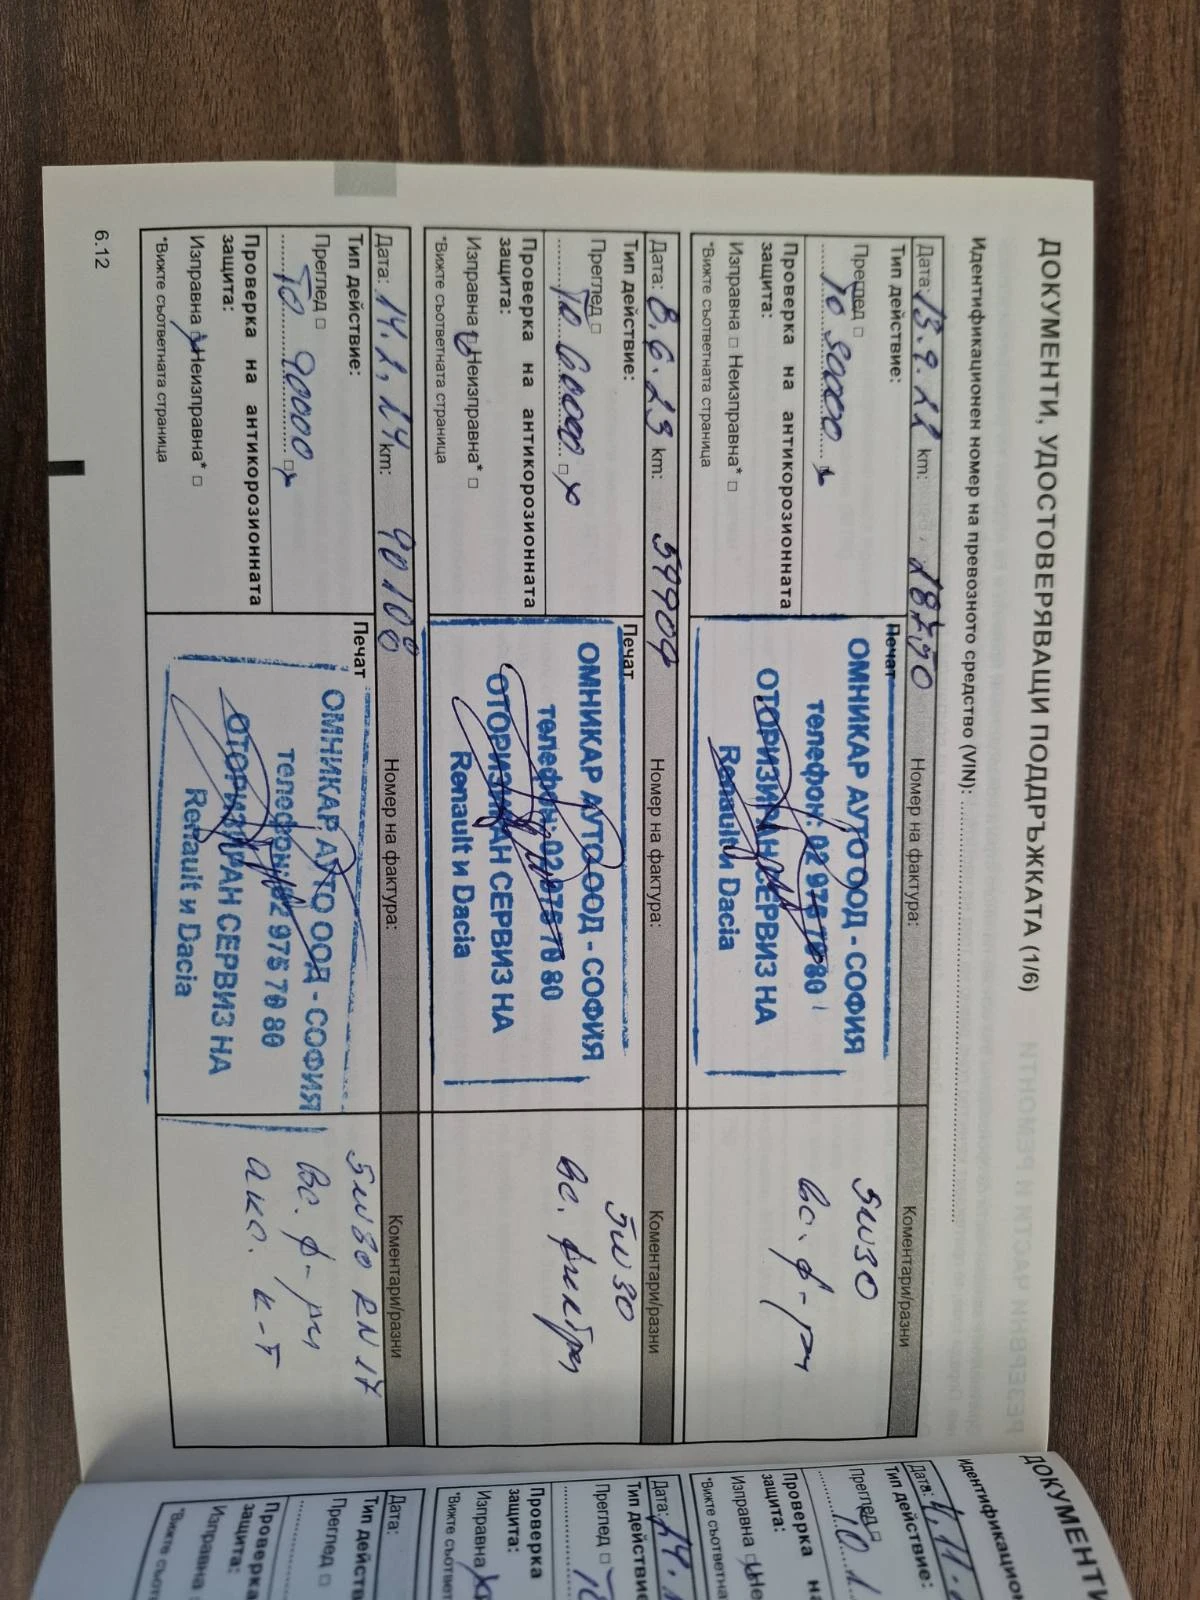 ДОКУМЕНТИ, УДОСТОВЕРЯВАЩИ ПОДДРЪЖКАТА (1/6)
Идентификационен номер на превозното средство (VIN):
Дата: 13.9.22 km:
Номер на фактура:
Коментари/разни
Тип действие:
Преглед □
ТО 30000
Проверка на антикорозионната защита:
Изправна □ Неизправна* □
*Вижте съответната страница
Печат
ОМНИКАР АУТО ООД - СОФИЯ
телефон: 02 975 70 80
ОТОРИЗИРАН СЕРВИЗ НА
Renault и Dacia
5W30
вс. ф-ри
Дата: 8.6.23 km: 59909
Номер на фактура:
Коментари/разни
Тип действие:
Преглед □
ТО 60000 □ x
Проверка на антикорозионната защита:
Изправна □ Неизправна* □
*Вижте съответната страница
Печат
ОМНИКАР АУТО ООД - СОФИЯ
телефон: 02 975 70 80
ОТОРИЗИРАН СЕРВИЗ НА
Renault и Dacia
5W30
вс. филтри
Дата: 14.2.24 km: 90100
Номер на фактура:
Коментари/разни
Тип действие:
Преглед □
ТО 90000
Проверка на антикорозионната защита:
Изправна □ Неизправна* □
*Вижте съответната страница
Печат
ОМНИКАР АУТО ООД - СОФИЯ
телефон: 02 975 70 80
ОТОРИЗИРАН СЕРВИЗ НА
Renault и Dacia
5W30 RN17
вс. ф-ри
акс. к-т
6.12
ДОКУМЕНТИ
Дата: 4.11.
Тип действие:
Преглед □
Проверка на
защита:
Дата:
Тип действие
Преглед □
Проверка
защита:
Изправна
Дата:
Тип действ
Преглед □
Проверка
защита:
Изправна